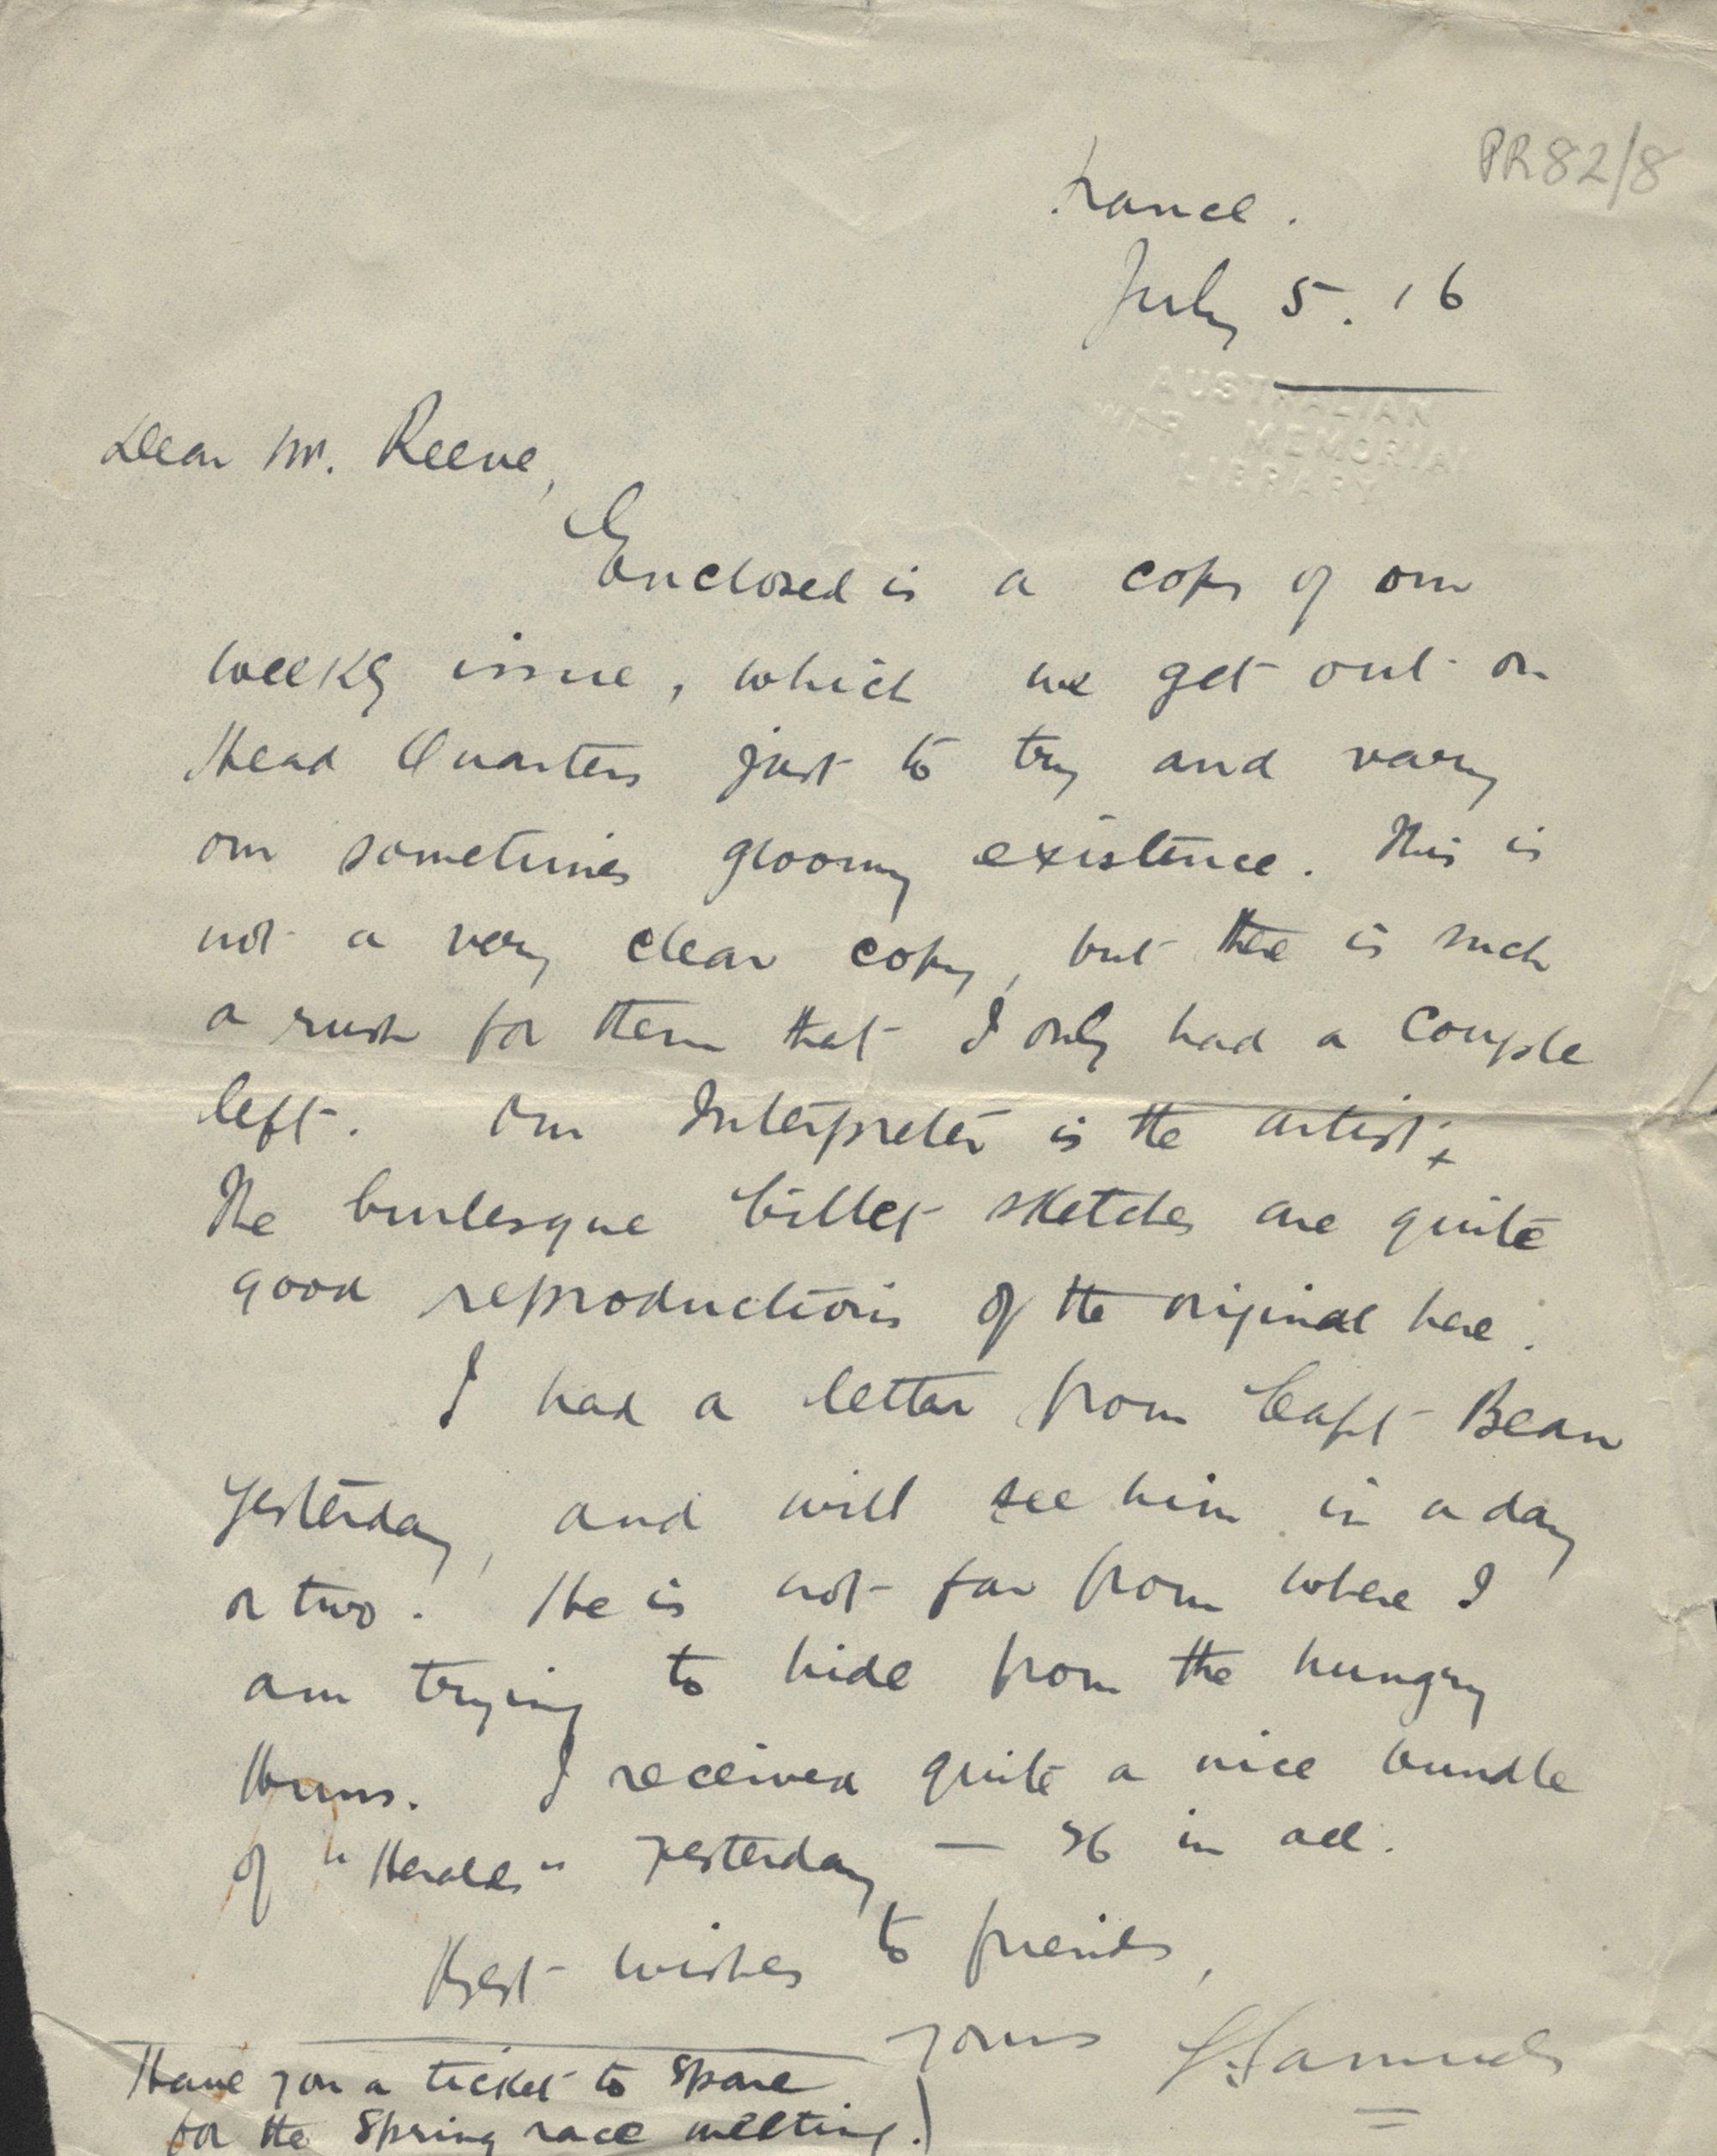 PR82/8
France.
July 5. 16
AUSTRALIAN
WAR MEMORIAL
LIBRARY
Dear Mr. Reeve,
Enclosed is a copy of our
weekly issue, which we get out on
Head Quarters just to try and vary
our sometimes gloomy existence. This is
not a very clear copy, but there is such
a rush for them that I only had a couple
left. Our Interpreter is the artist; +
The burlesque billet sketches are quite
good reproductions of the original here.
I had a letter from Capt Bean
yesterday, and will see him in a day
or two. He is not far from where I
am trying to hide from the hungry
Huns. I received quite a nice bundle
of "Heralds" yesterday — 36 in all.
Best wishes to friends,
Yours
Have you a ticket to spare
for the Spring race meeting.)